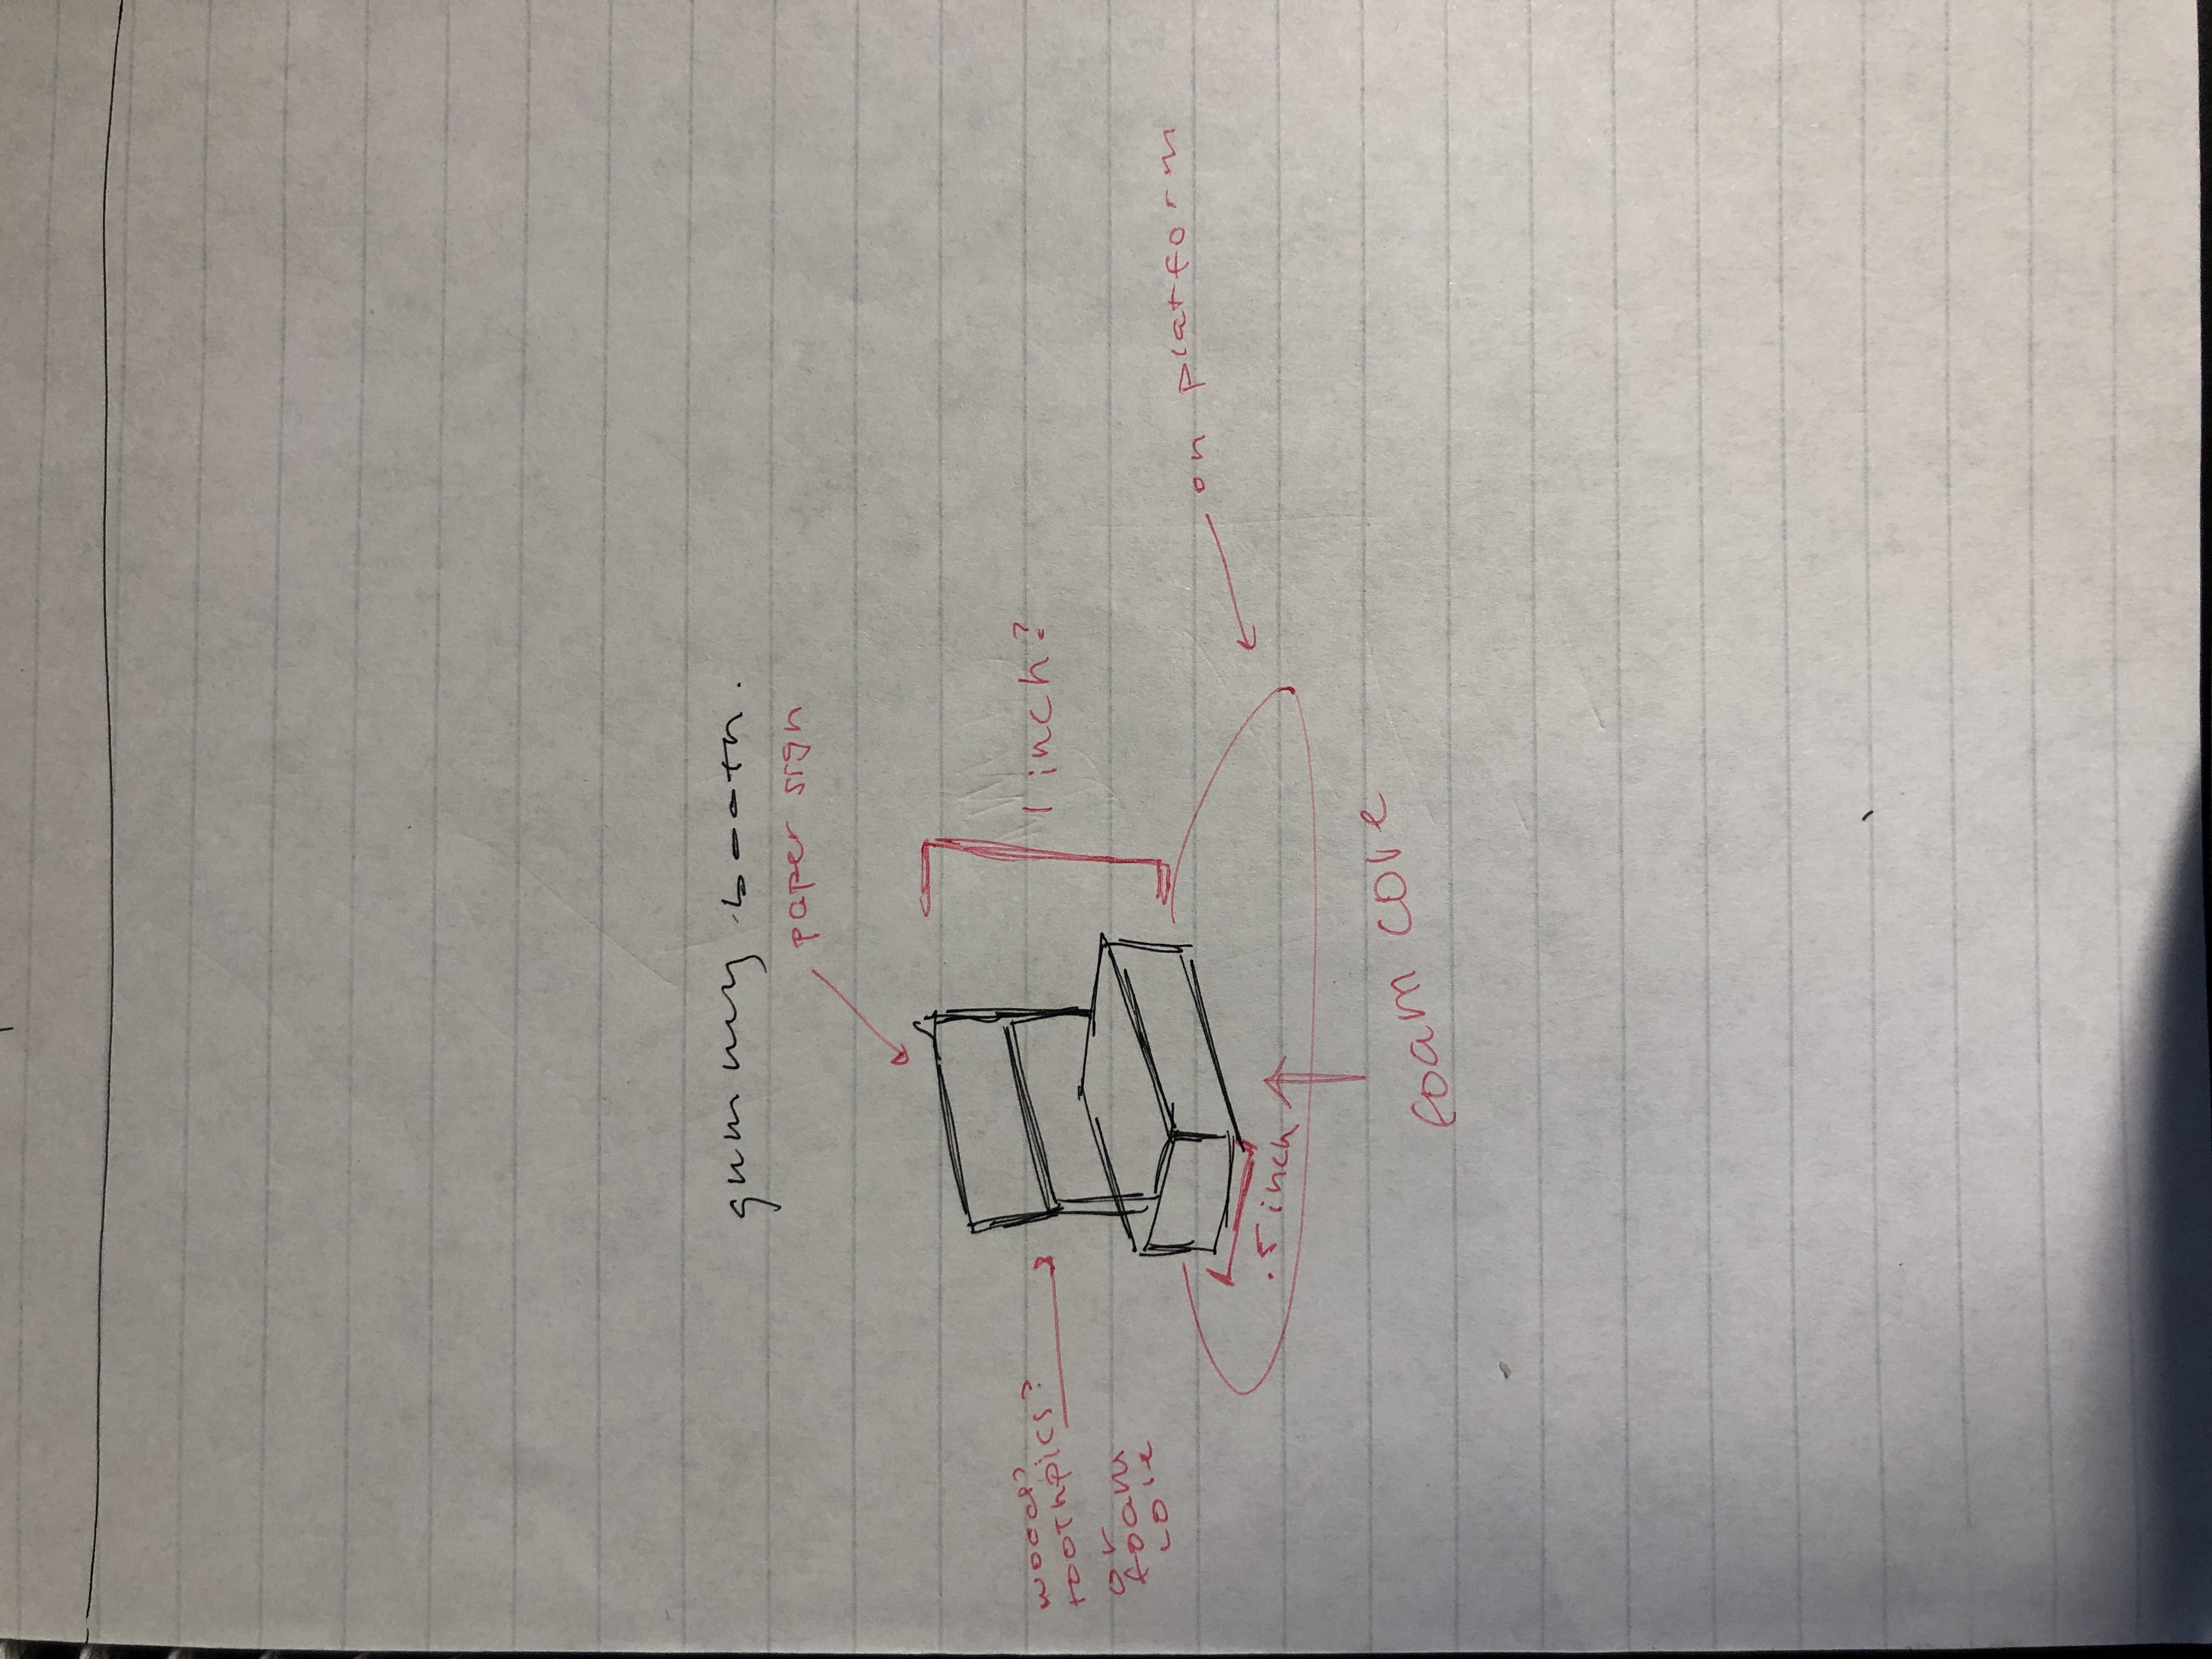 gummy booth.
paper sign
wood?
toothpics?
or
foam
core
1 inch?
on platform
.5 inch
foam core